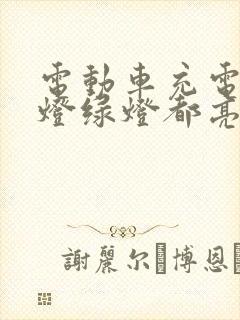 電動車充電
燈綠燈都亮
謝麗尔·博恩